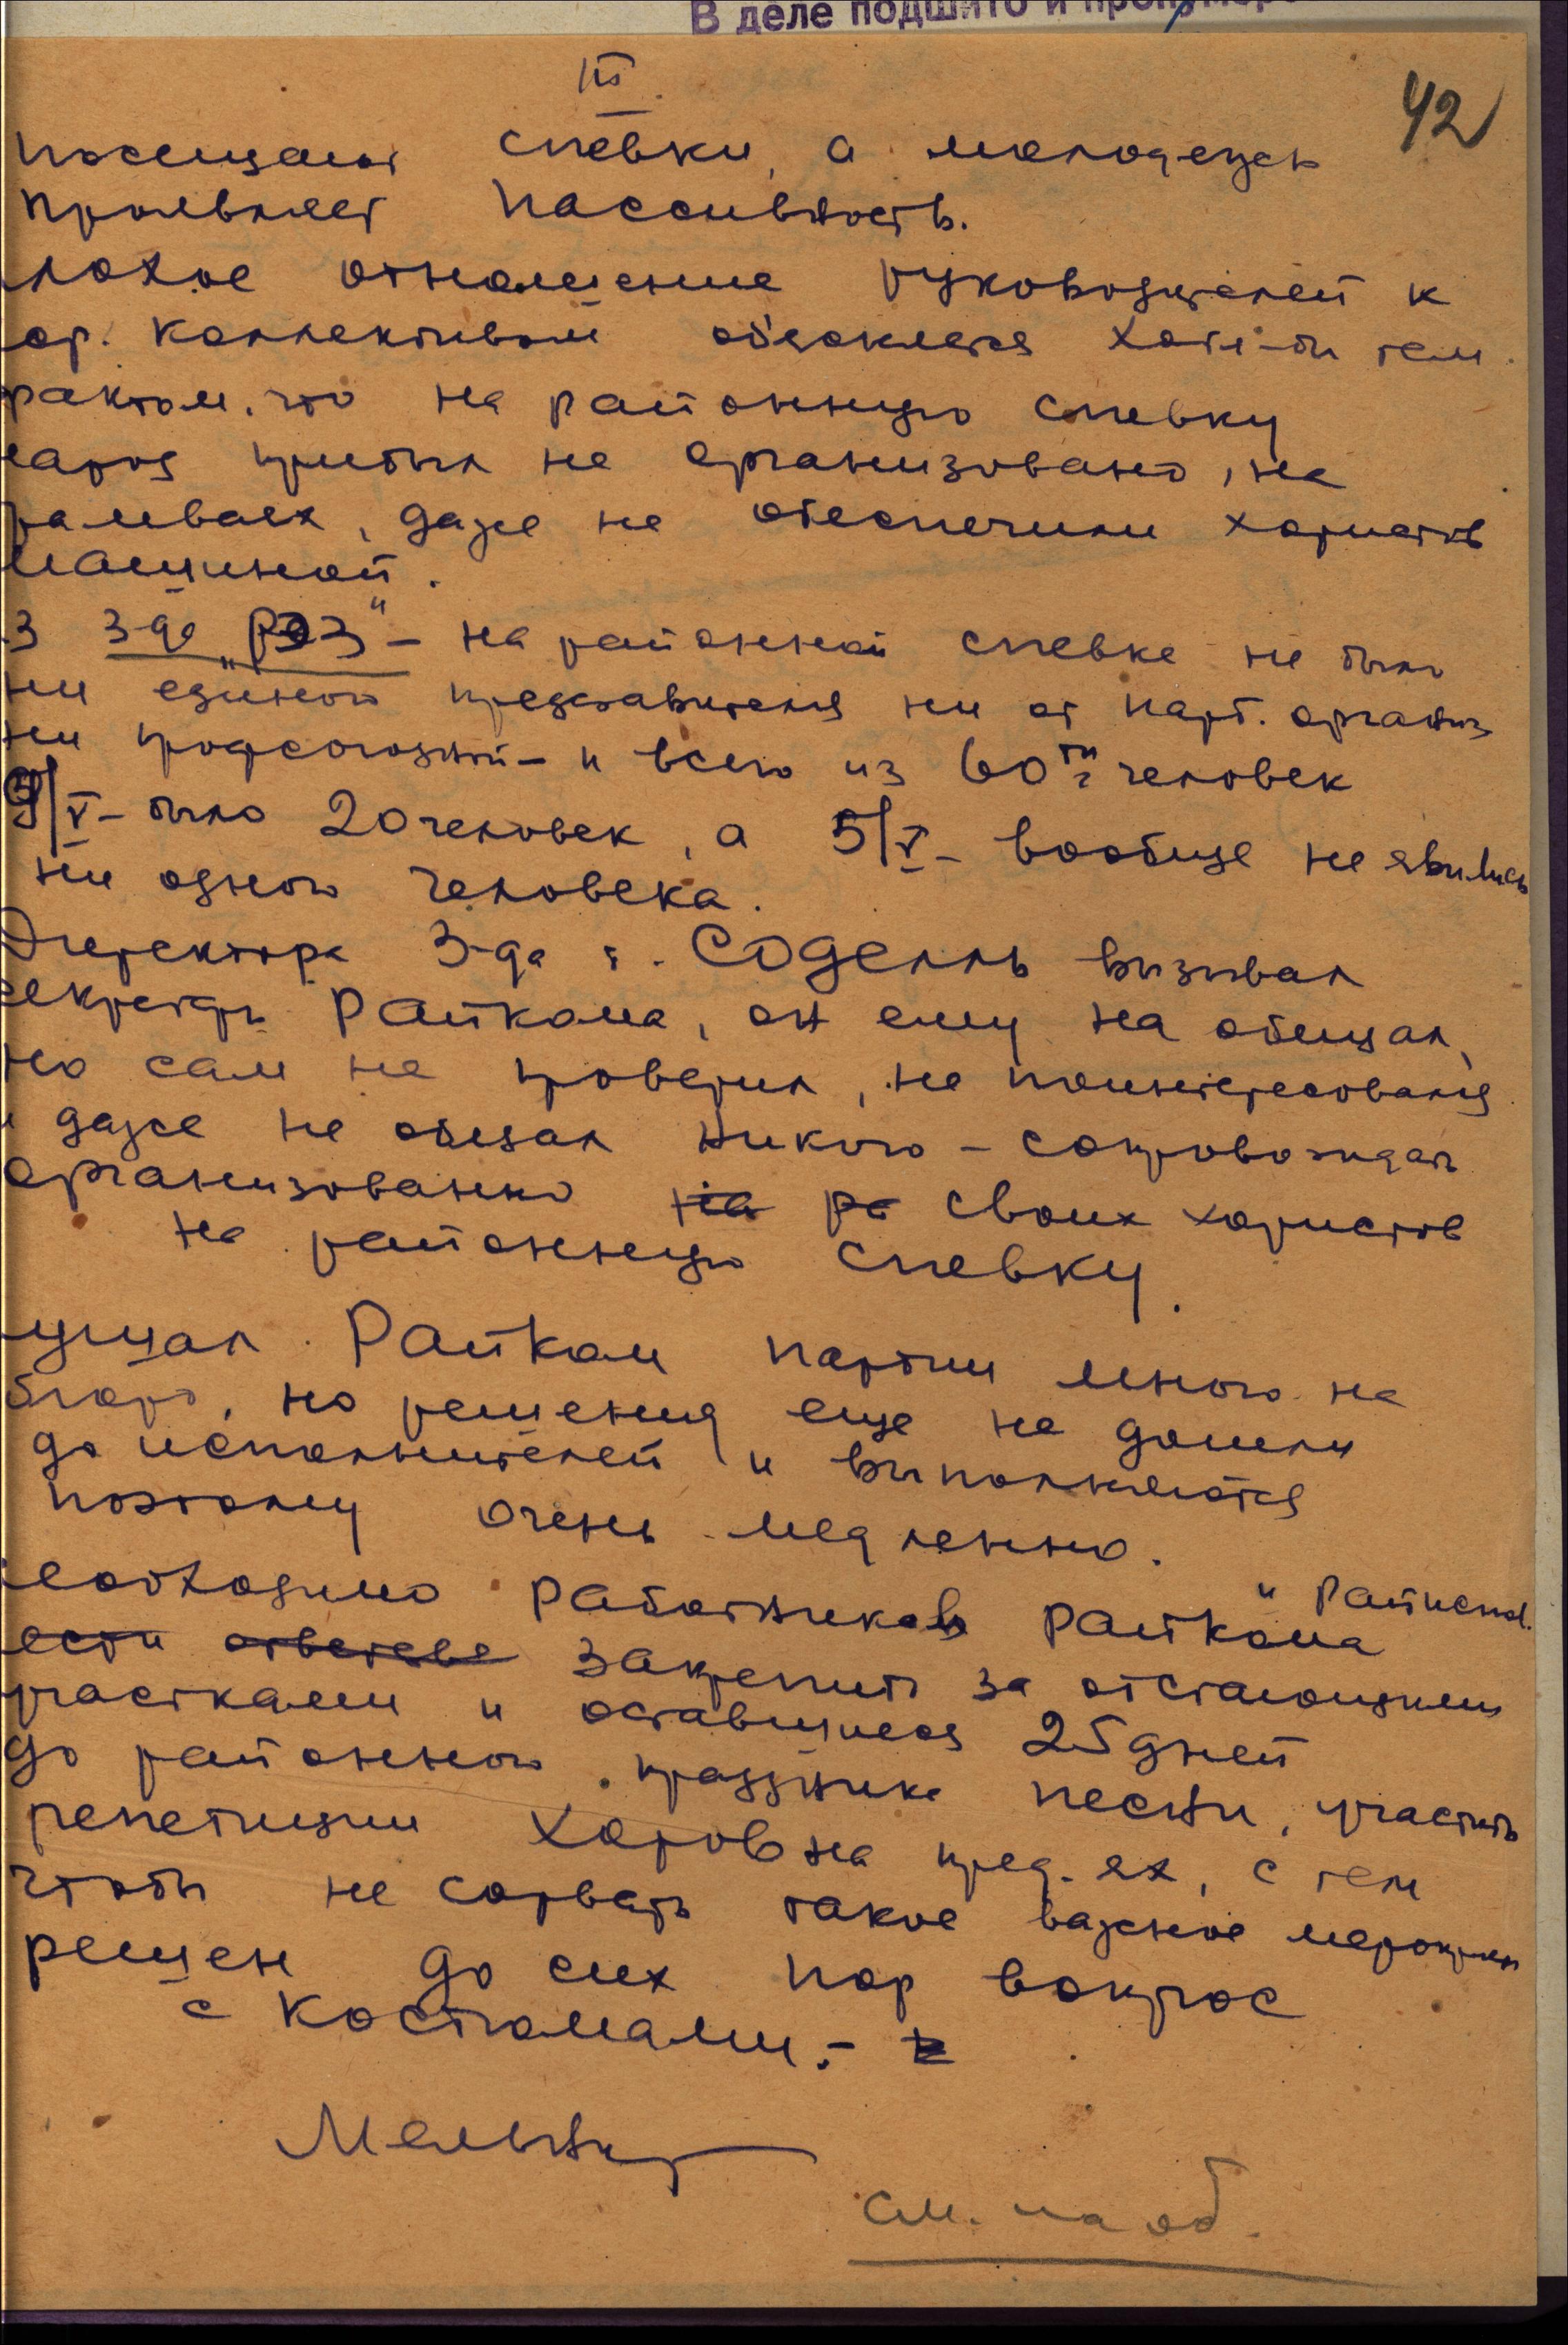 В деле подшито и прону
III
42
посещают спевки, а молодежь
проявляет пассивность.
лохое отношение руководителей к
ор. коллективам объясняется хотя-бы тем
фактом, что на районную спевку
народ прибыл не организовано, на
рамваях, даже не обеспечили хористов
машиной.
з з-да „РЭЗ" – на районной спевке не было
ни единого представителя ни от парт. организ
ни профсоюзной – и всего из 60ти человек
/V – было 20 человек, а 5/V – вообще не явились
ни одного человека.
Директора з-да т. Соделль вызывал
секретарь Райкома, он ему на обещал,
но сам не проверил, не поинтересовался
и даже не обещал никого – сопровождать
организованно на ра своих хористов
на районную спевку.
Райком партии много на
бюро, но решения еще не дошли
до исполнителей и выполняются
поэтому очень медленно.
необходимо работников райкома и Райиспол.
закрепить за отстающими
участками и оставшиеся 25 дней
до районного праздника песни, участить
репетиции хоров на пред.ях, с тем
чтобы не сорвать такое важное мероприят
решен до сих пор вопрос
с костюмами. –
см. на об.